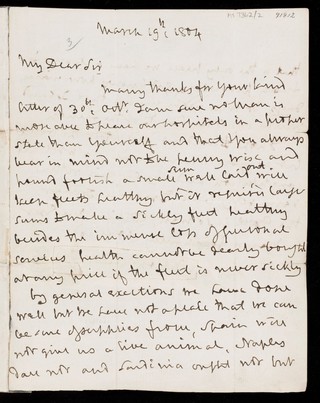 M. 1302/2 91812
3/
March 19th: 1804
My Dear Sir
Many thanks for your kind
letter of 30th: Octr. I am sure no man is
more able to place our hospitals in a proper
state than yourself and that you always
bear in mind not to be penny wise and
pound foolish a small sum well laid out will
keep fleets healthy but it requires large
sums to make a sickly fleet healthy
besides the immense loss of personal
services health cannot be dearly bought
at any price if the fleet is never sickly
by general exertions we have done
well but we have not a place that we can
be sure of supplies from, Spain will
not give us a live animal, Naples
dare not and Sardinia ought not but